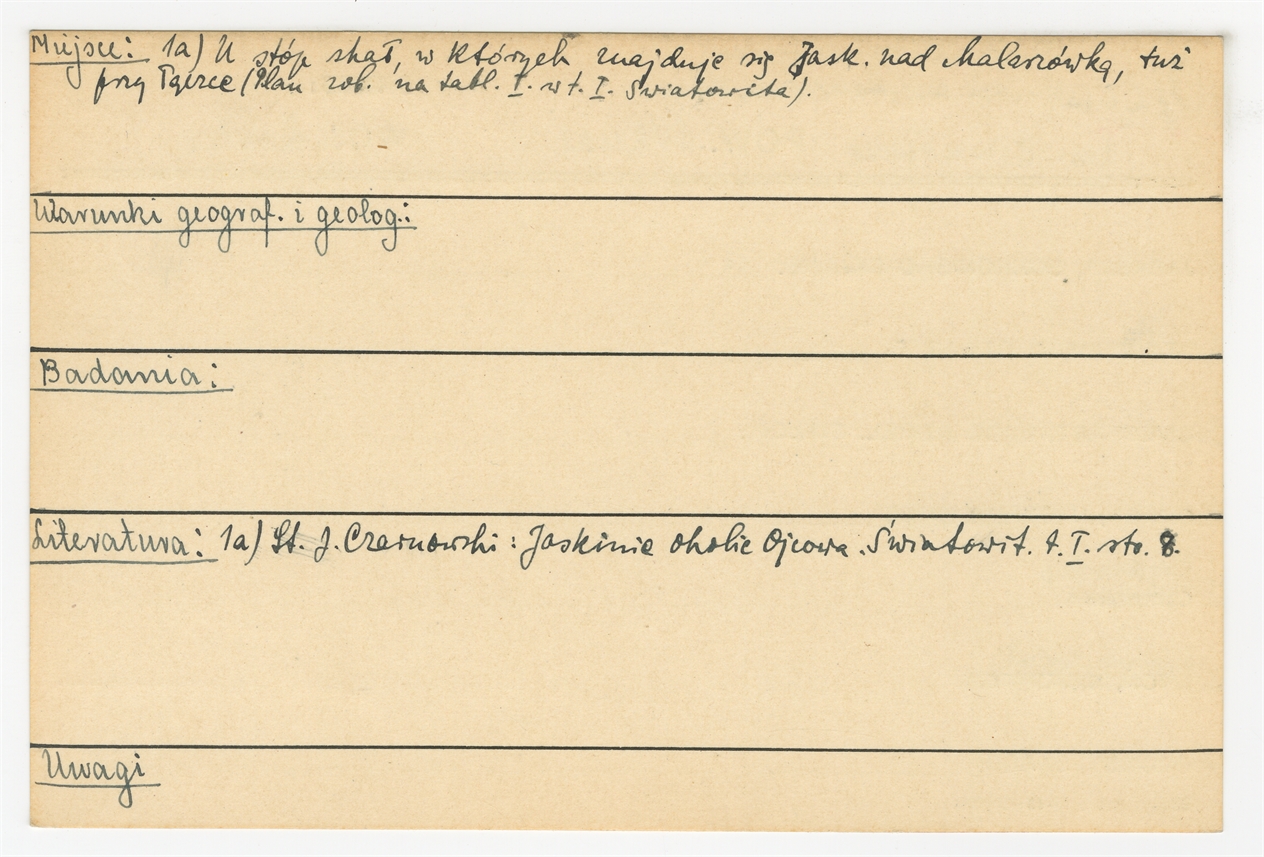 Miejsce: 1a) U stóp skał, w których znajduje się Jask. nad Malarzówką, tuż
przy Tęczce (Plan zob. na tabl. I. w t. I. Światowita).
Warunki geograf. i geolog.:
Badania:
Literatura: 1a) St. J. Czarnowski: Jaskinie okolic Ojcowa. Światowit. t. I. str. 8.
Uwagi